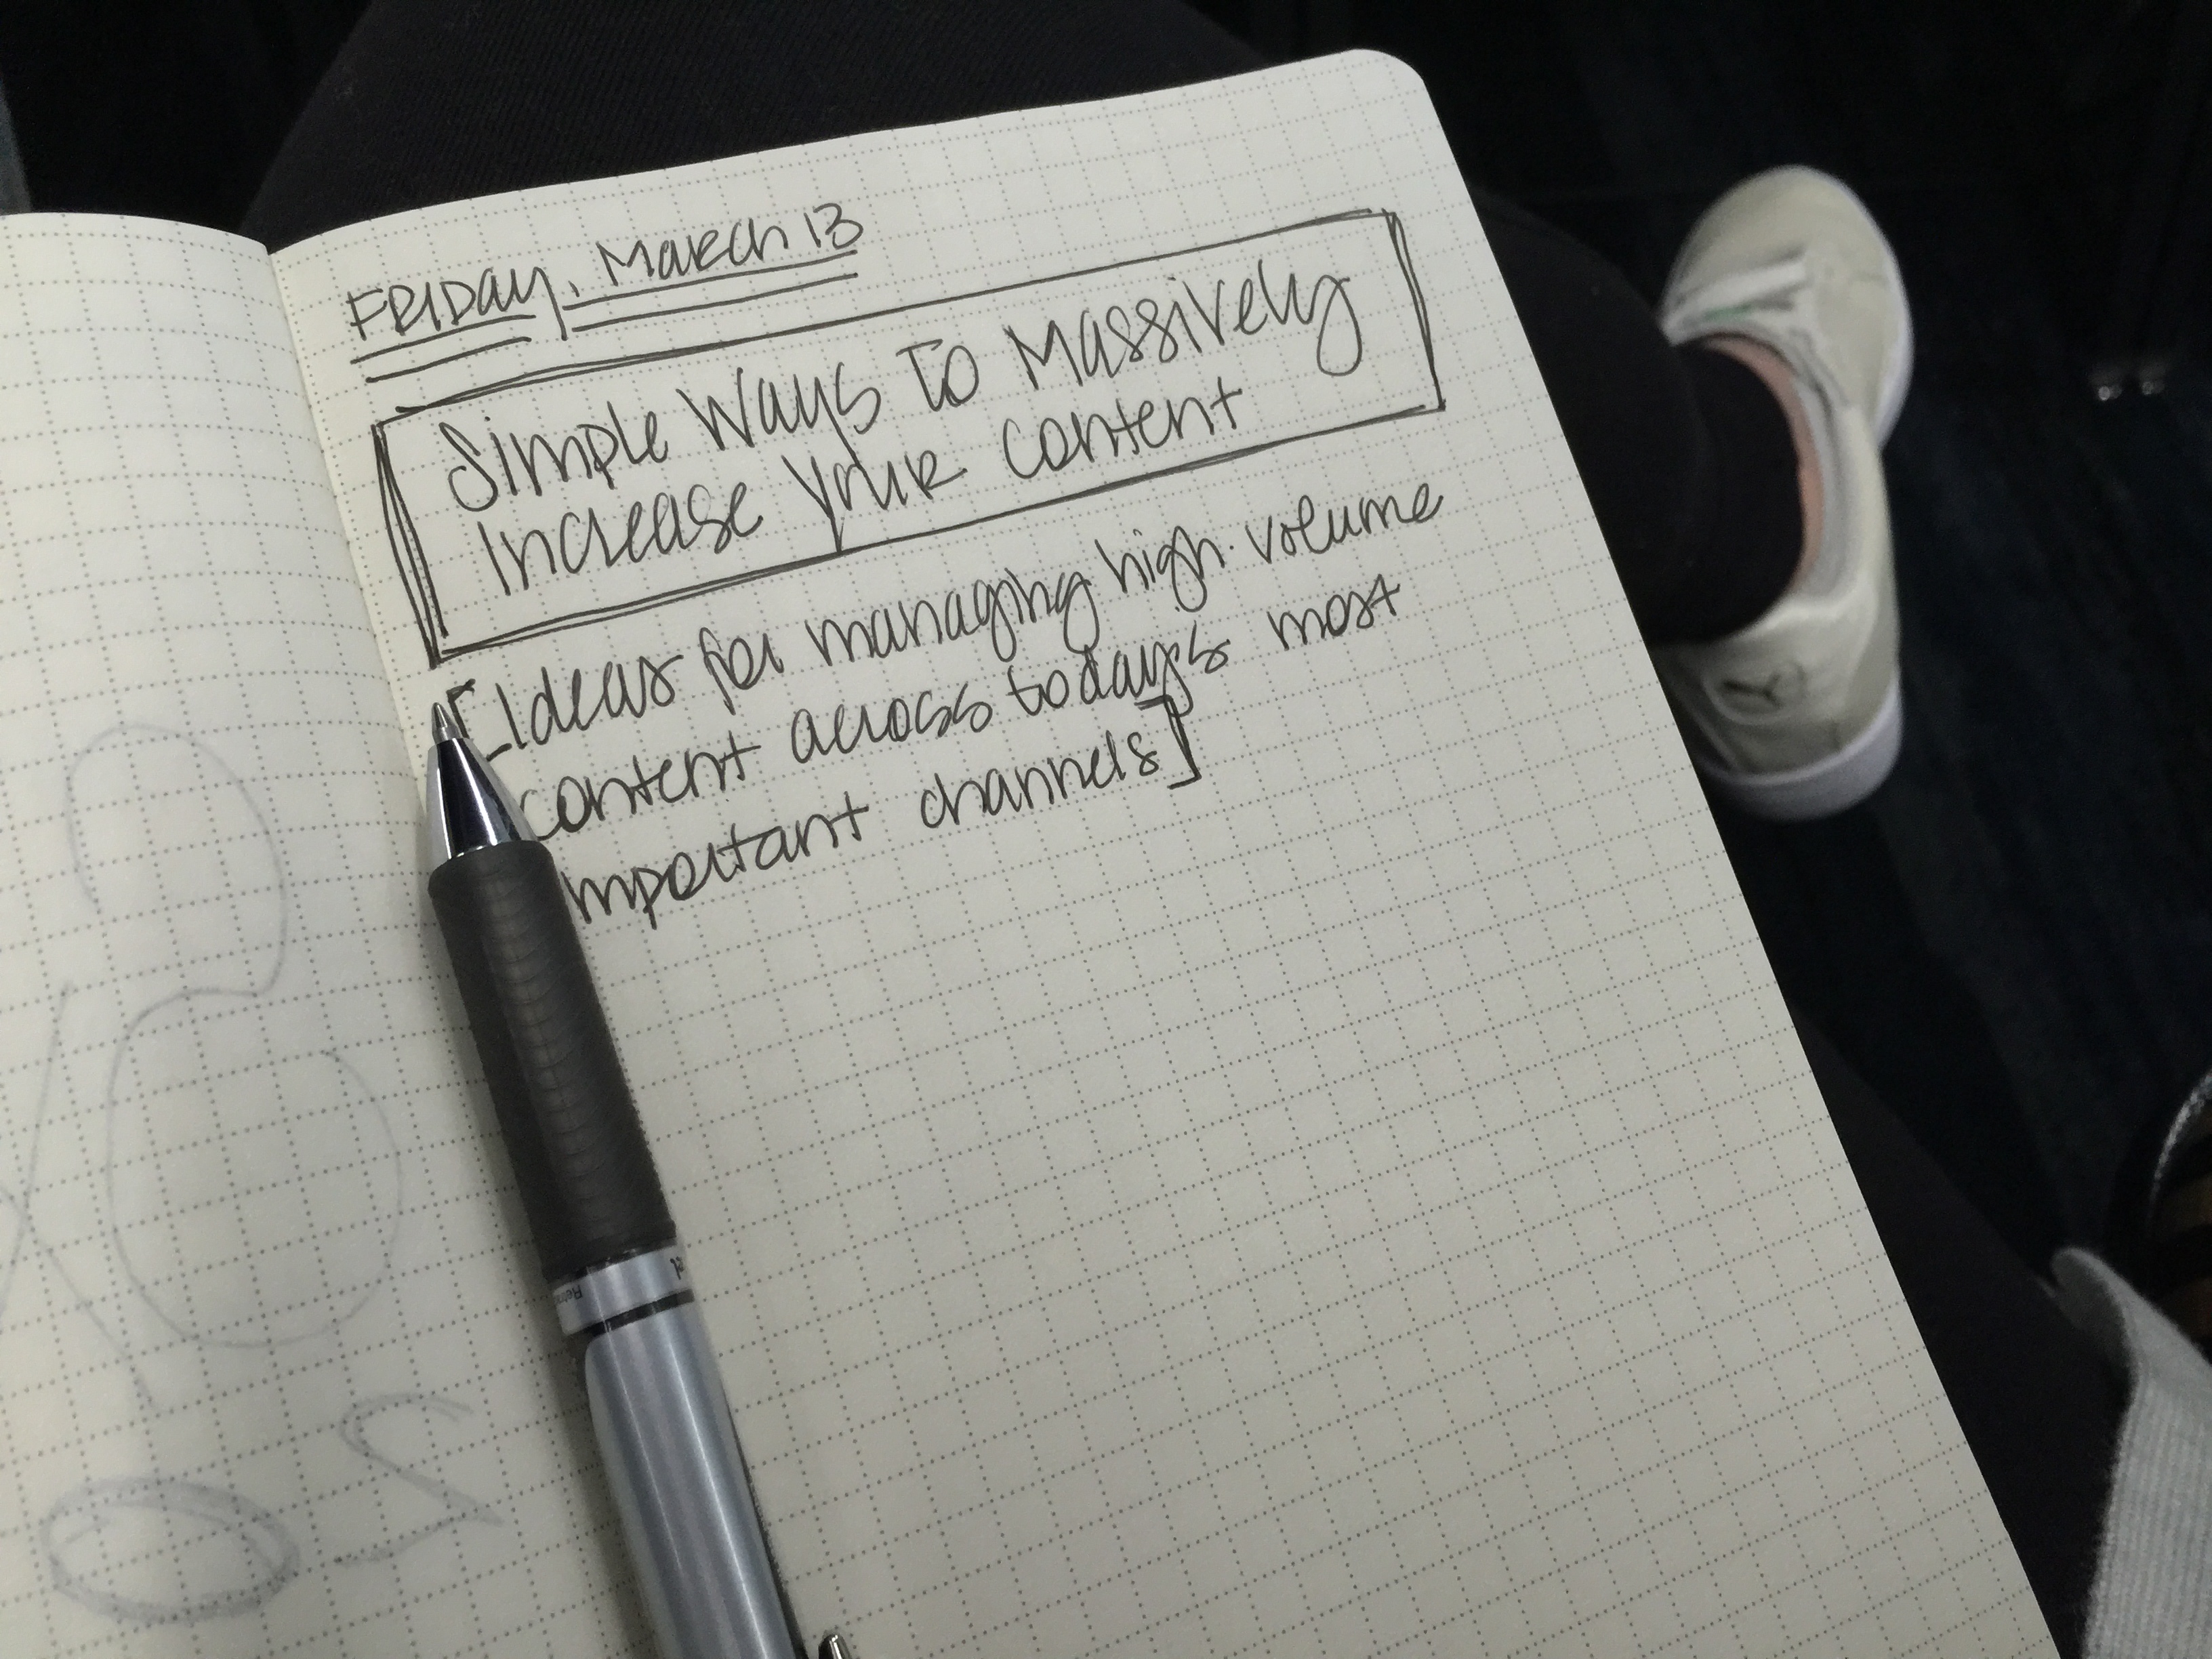 FRIDAY, MARCH 13
Simple Ways To Massively
Increase your content
[Ideas for managing high-volume
content across today's most
important channels]